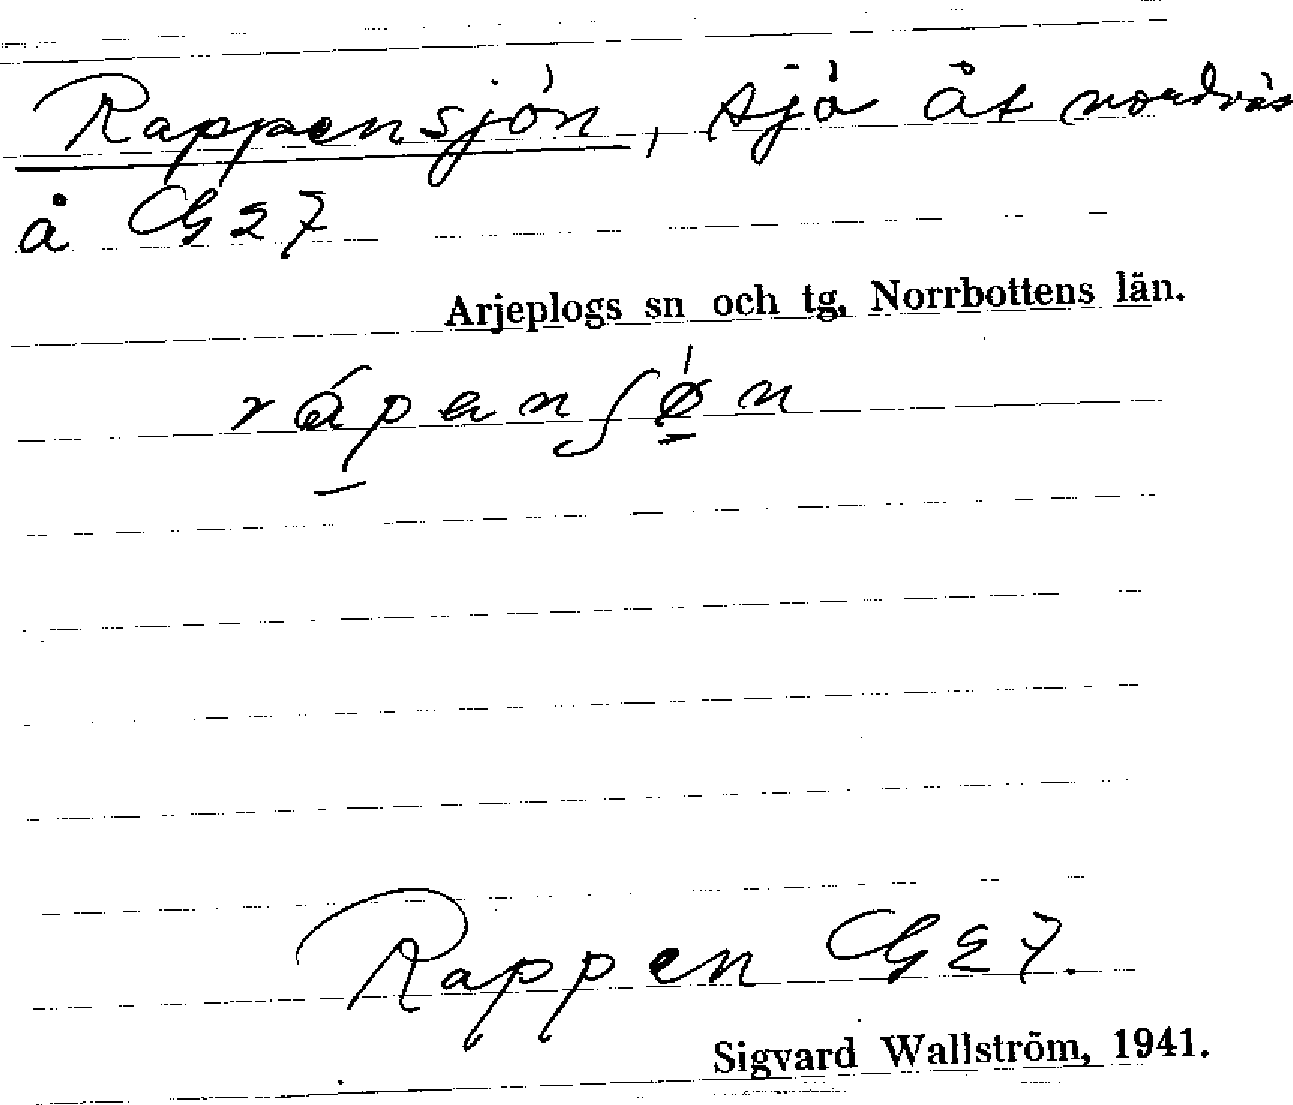 Rappensjön, sjö åt nordväs
å G27
Arjeplogs sn och tg, Norrbottens län.
Rappen G27.
Sigvard Wallström, 1941.